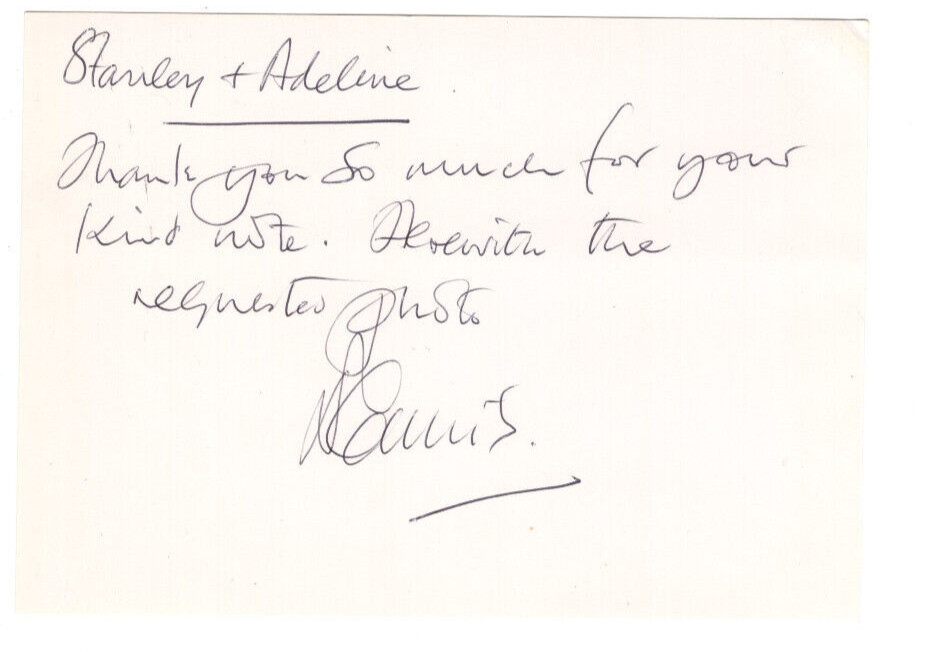 Stanley + Adeline
Thank you so much for your
kind note. Herewith the
requested photo